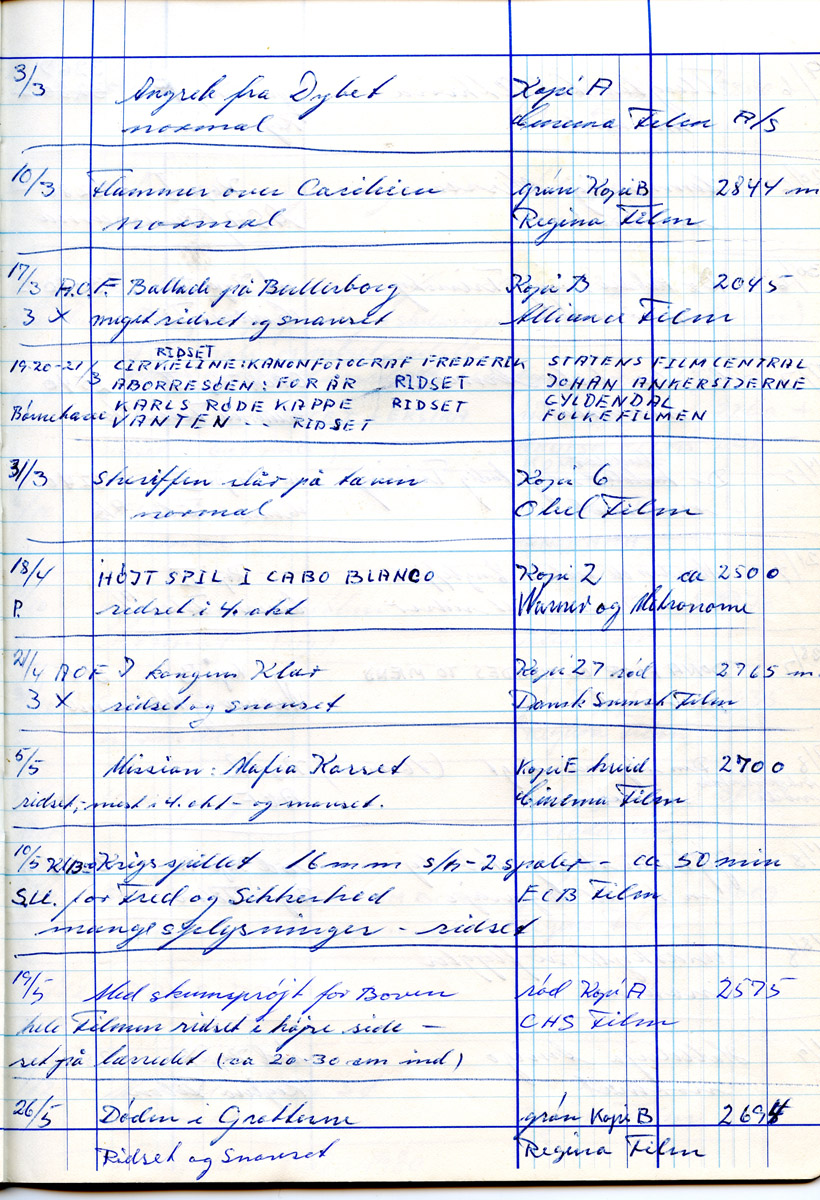 3/3 Angreb fra Dybet Kopi A
normal Cinema Film A/S
10/3 Flammer over Casilien grøn Kopi B 2844 m
normal Regina Film
17/3 A.O.F. Ballade på Bullerborg Kopi B 2045
3 X meget ridset og snavset Alliance Film
RIDSET
19-20-21/3 CIRKELINE: KANONFOTOGRAF FREDERIK STATENS FILMCENTRAL
ABORRESØEN: FORÅR RIDSET JOHAN ANKERSTJERNE
Børnehave KARLS RØDE KAPPE RIDSET GYLDENDAL
VANTEN -- RIDSET FOLKEFILMEN
31/3 Sheriffen slår på tæven Kopi 6
normal Obel Film
18/4 HØJT SPIL I CABO BLANCO Kopi 2 ca 2500
P. ridset i 4. akt Warner og Metronome
21/4 AOF I kongens Klær Kopi 27 rød 2765 m
3 X ridset og snavset Dansk Svensk Film
5/5 Mission: Mafia Korset Kopi E hvid 2700
ridset, mest i 4. akt - og snavset. Cinema Film
10/5 Krigsspillet 16mm s/h - 2 spoler - ca 50 min
S.U. for Fred og Sikkerhed ECB Film
mange splejsninger - ridset
19/5 Med skumsprøjt for Boven rød Kopi A 2575
hele Filmen ridset i højre side - CHS Film
set på lærredet (ca 20-30 cm ind)
26/5 Døden i Grotterne grøn Kopi B 2694
Ridset og Snavset Regina Film